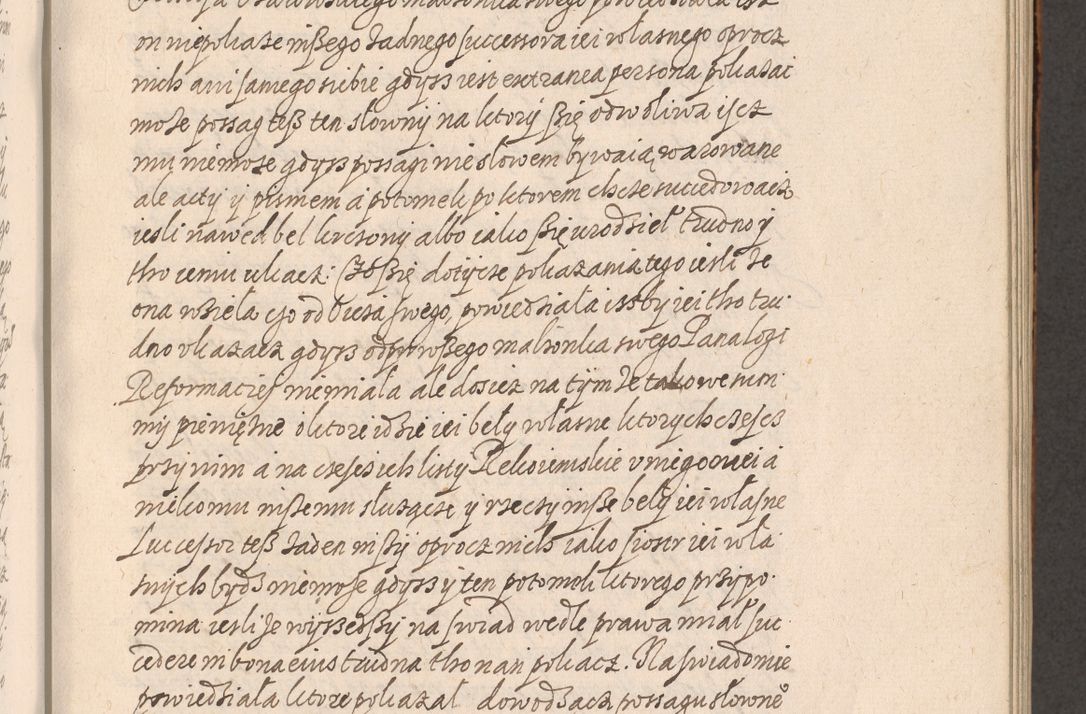 on niepokaże inszego żadnego successora iei własnego oprocz
nich ani samego siebie gdysz iest extranea persona pokazai
może possag tesz ten słowny na ktory się odwoliwa ijcz
mu niemoze gdysz possagi nie słowem bywaią warowane
ale acty y pismem a potomek po ktorem chcze succedowacz
iesli nawed bel krczony albo iako się urodzieł trudno y
tho iemu ukacz: Czo się dotycze pokazania tego iesli że
ona wzieła czo od Oicza swego, powiedziała iszby iei tho tru
dno vkazacz gdysz odpirwszego małzonka swego Pana Lozi
Reformaciei niemiała ale dosicz na tym że takowe sum
my pieniężne o ktore idzie iei beły własne ktorych czescz
przy nim a na czesc ich listy Rekoiemskie v niego a iei a
nikomu inszemu służącze y rzeczy insze beły iei własne
Successor tesz żaden inszy oprocz nich iako siostr iei wła
snych bydz niemoże gdysz y ten potomek ktorego przypo
mina iesli że wyszedszy na swiad wedle prawa miał suc
cedere in bona eius trudna tho na iei pokacz. Na swiadomie
powiedziała ktore pokazał dowodzacz possagu słowne°